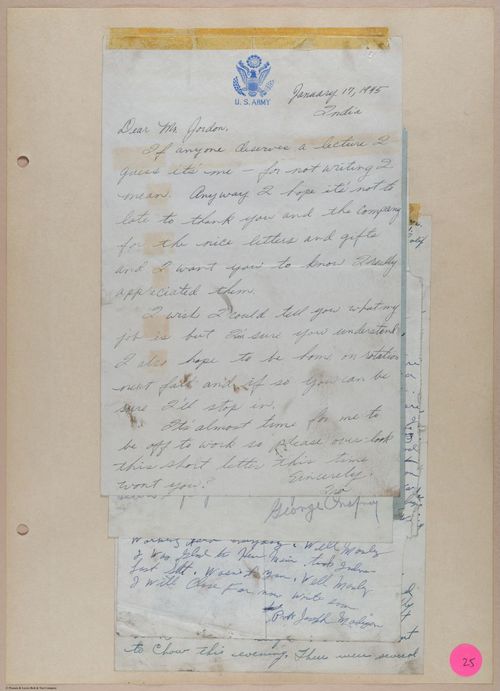 U. S. ARMY
January 17, 1945
India
Dear Mr. Jordon,
If anyone deserves a lecture I
guess it's me — for not writing I
mean. Anyway I hope it's not to
late to thank you and the company
for the nice letters and gifts
and I want you to know I really
appreciated them.
I wish I could tell you what my
job is but I'm sure you understand
I also hope to be home on rotation
next fall and if so you can be
sure I'll stop in.
It's almost time for me to
be off to work so please over look
this short letter this time
wont you?
Sincerely,
George
Well
I Was Glad to
Last Well
I Will Close For now write soon
Pvt. Joseph Madison
to Chow this evening. There were several
25